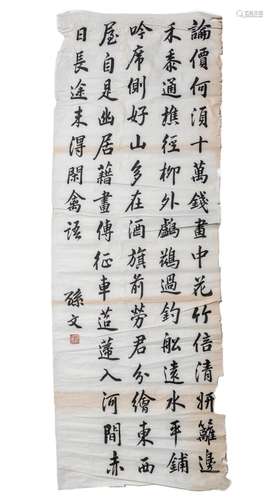 論價何須十萬錢畫中花竹倍清妍籬邊
禾黍通樵徑柳外鸕鶿過釣船遠水平鋪
吟席側好山多在酒旗前勞君分繪東西
屋自是幽居藉畫傳征車迢遞入河間赤
日長途未得閑禽語
孫文